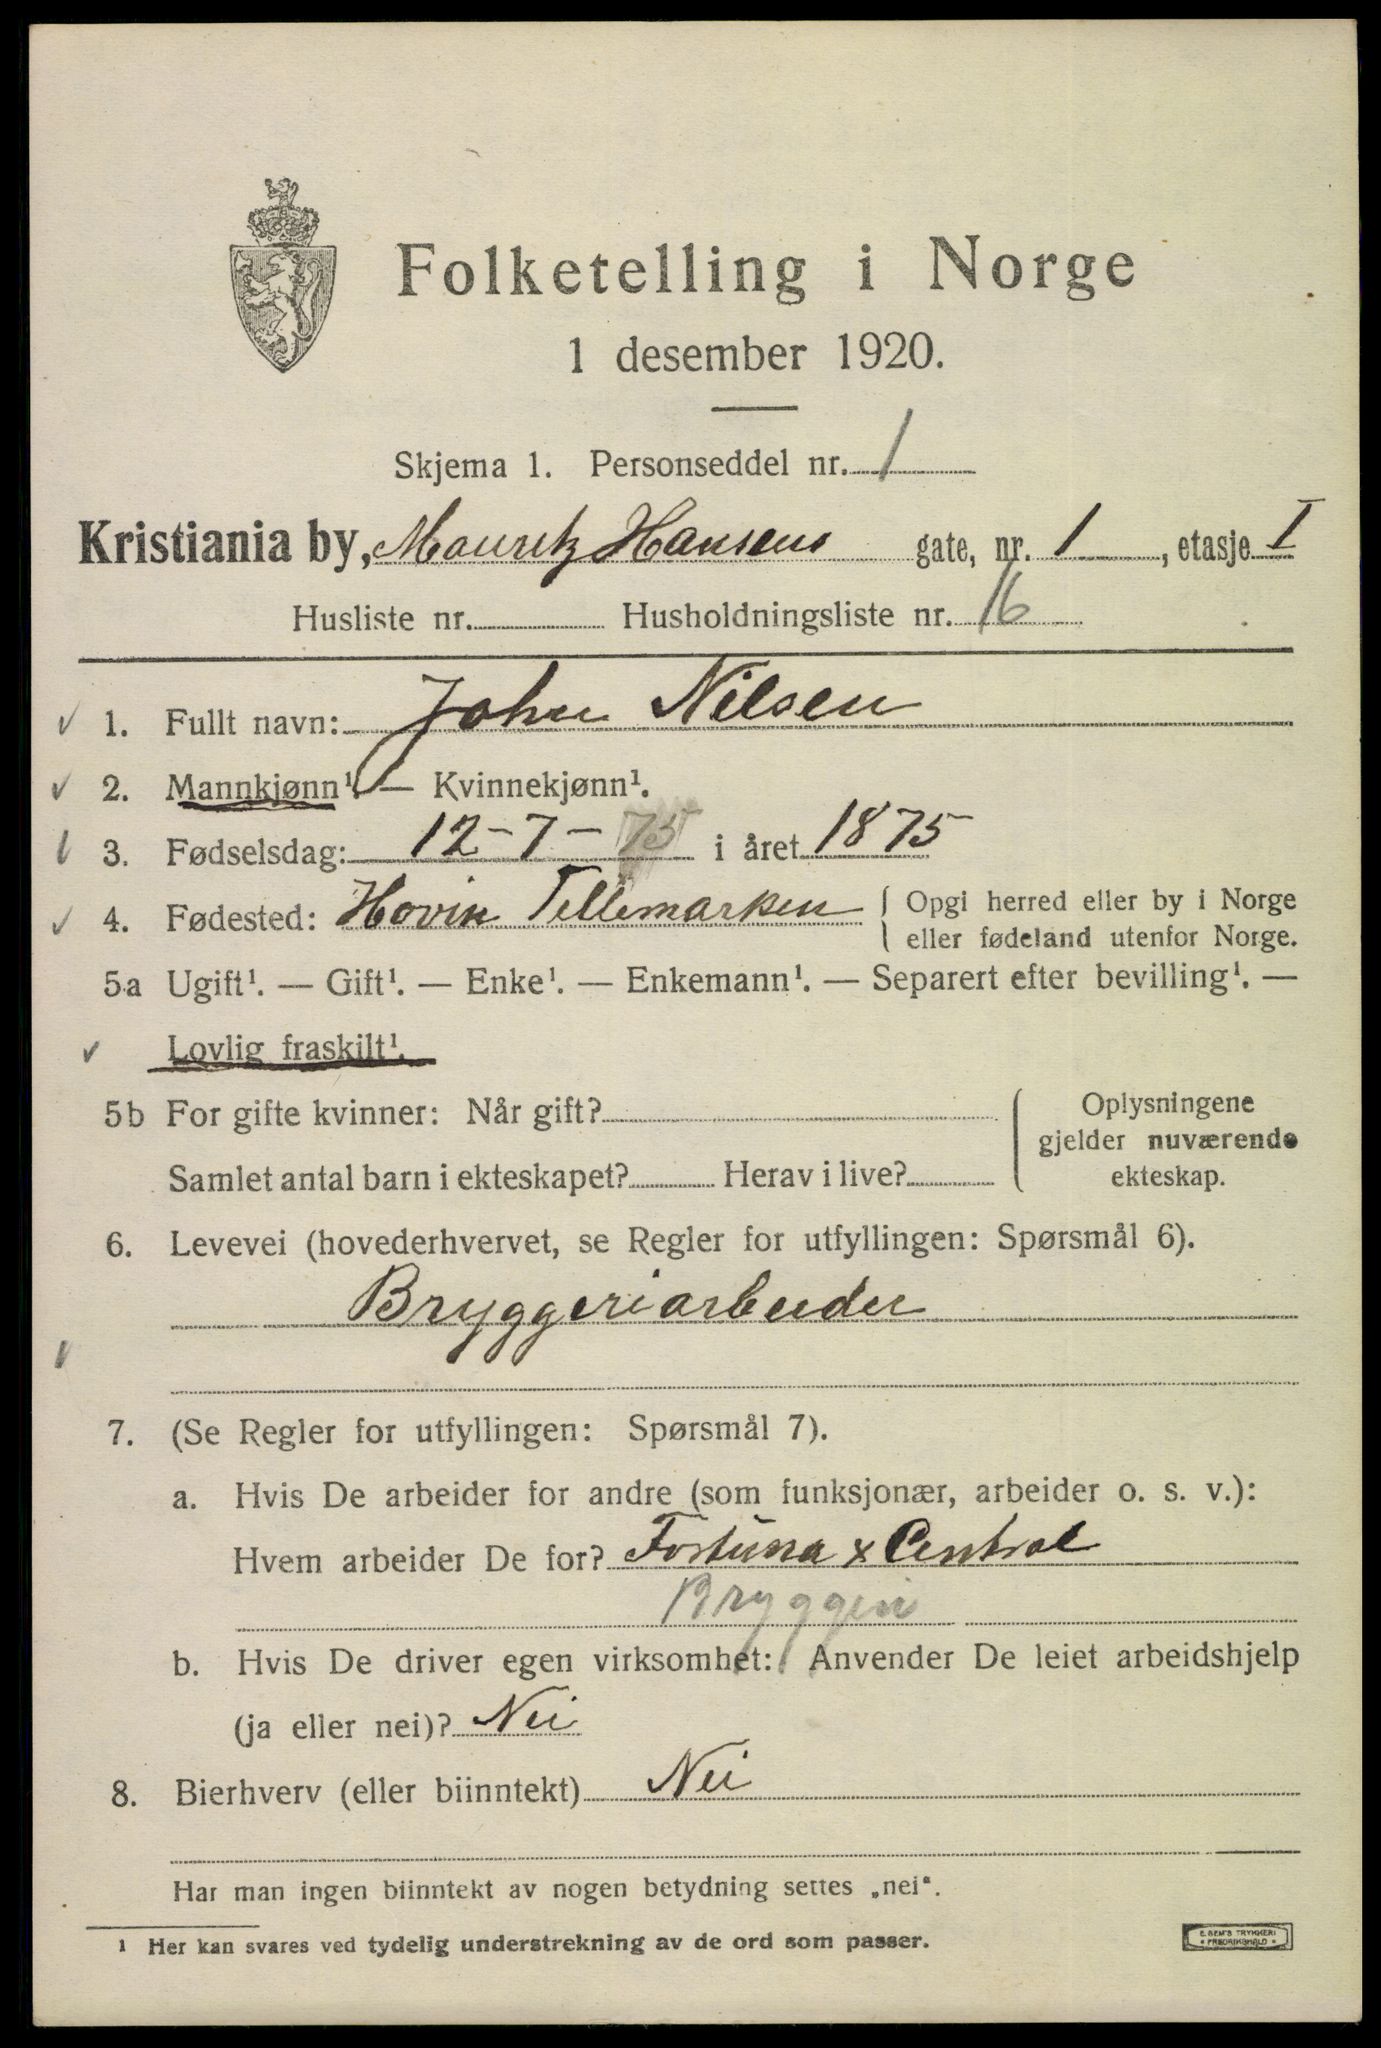 Folketelling i Norge
1 desember 1920.
Skjema 1. Personseddel nr. 1
Kristiania by, Mauritz Hansens gate, nr. 1, etasje I
Husliste nr. Husholdningsliste nr. 16
1. Fullt navn: John Nilsen
2. Mannkjønn¹. — Kvinnekjønn¹.
3. Fødselsdag: 12-7-75 i året 1875
4. Fødested: Hovin Tellemarken { Opgi herred eller by i Norge
eller fødeland utenfor Norge.
5a Ugift¹. — Gift¹. — Enke¹. — Enkemann¹. — Separert efter bevilling¹. —
Lovlig fraskilt¹.
5b For gifte kvinner: Når gift? { Oplysningene
gjelder nuværende
Samlet antal barn i ekteskapet? Herav i live? ekteskap.
6. Levevei (hovederhvervet, se Regler for utfyllingen: Spørsmål 6).
Bryggeriarbeider
7. (Se Regler for utfyllingen: Spørsmål 7).
a. Hvis De arbeider for andre (som funksjonær, arbeider o. s. v.):
Hvem arbeider De for? Fortuna & Central
Bryggeri
b. Hvis De driver egen virksomhet: Anvender De leiet arbeidshjelp
(ja eller nei)? Nei
8. Bierhverv (eller biinntekt) Nei
Har man ingen biinntekt av nogen betydning settes „nei“.
¹ Her kan svares ved tydelig understrekning av de ord som passer.
E. SEM'S TRYKKERI
* FREDRIKSHALD *